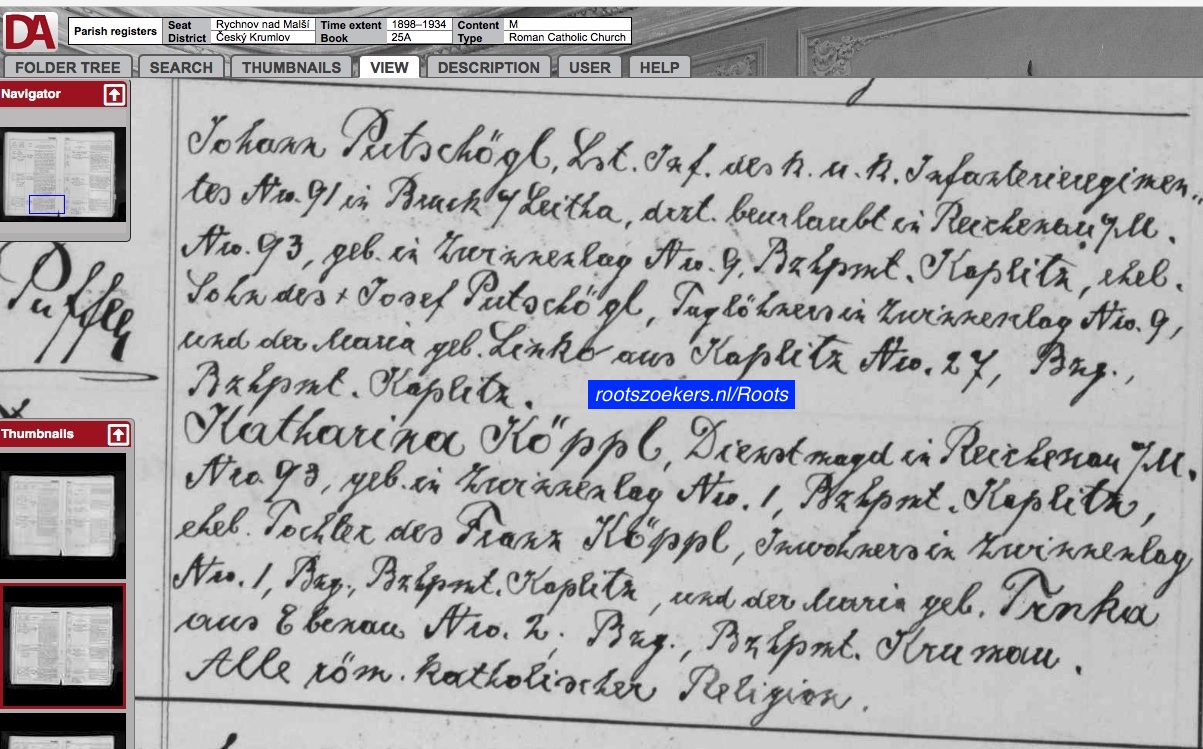 Parish registers
Seat Rychnov nad Malší Time extent 1898–1934 Content M
District Český Krumlov Book 25A Type Roman Catholic Church
DA
FOLDER TREE SEARCH THUMBNAILS VIEW DESCRIPTION USER HELP
Navigator
Johann Putschögl, Lst. Inf. des k. u. k. Infanterieregimen-
tes Nro. 91 in Bruck a/Leitha, drzt. beurlaubt in Reichenau a/M.
Nro. 93, geb. in Zwinnenlag Nro. 9, Bzhpmt. Kaplitz, ehel.
Sohn des + Josef Putschögl, Taglöhners in Zwinnenlag Nro. 9,
und der Maria geb. Linko aus Kaplitz Nro. 27, Bzg.,
Bzhpmt. Kaplitz.
rootszoekers.nl/Roots
Katharina Köppl, Dienstmagd in Reichenau a/M.
Nro. 93, geb. in Zwinnenlag Nro. 1, Bzhpmt. Kaplitz,
ehel. Tochter des Franz Köppl, Inwohners in Zwinnenlag
Nro. 1, Bzg., Bzhpmt. Kaplitz, und der Maria geb. Trnka
aus Ebenau Nro. 2. Bzg., Bzhpmt. Krumau.
Alle röm. katholischer Religion.
Thumbnails